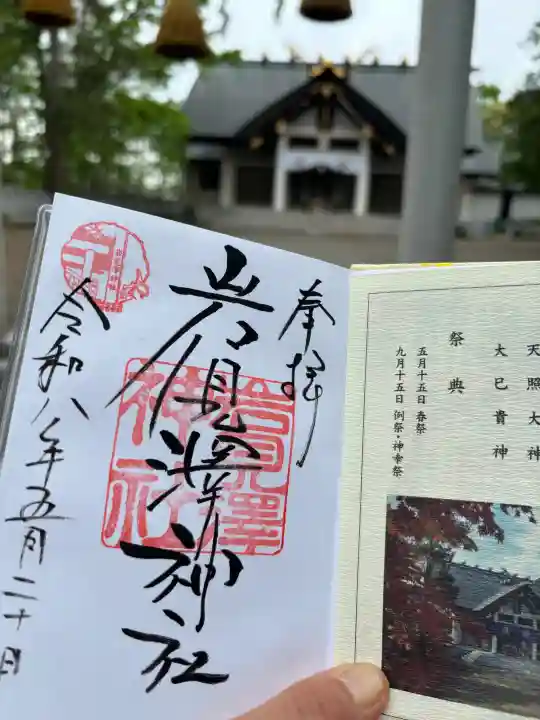 天照大神
大巳貴神
祭典
五月十五日 春祭
九月十五日 例祭・神幸祭
奉拝
岩見澤神社
岩見澤
神社
令和八年五月二十日